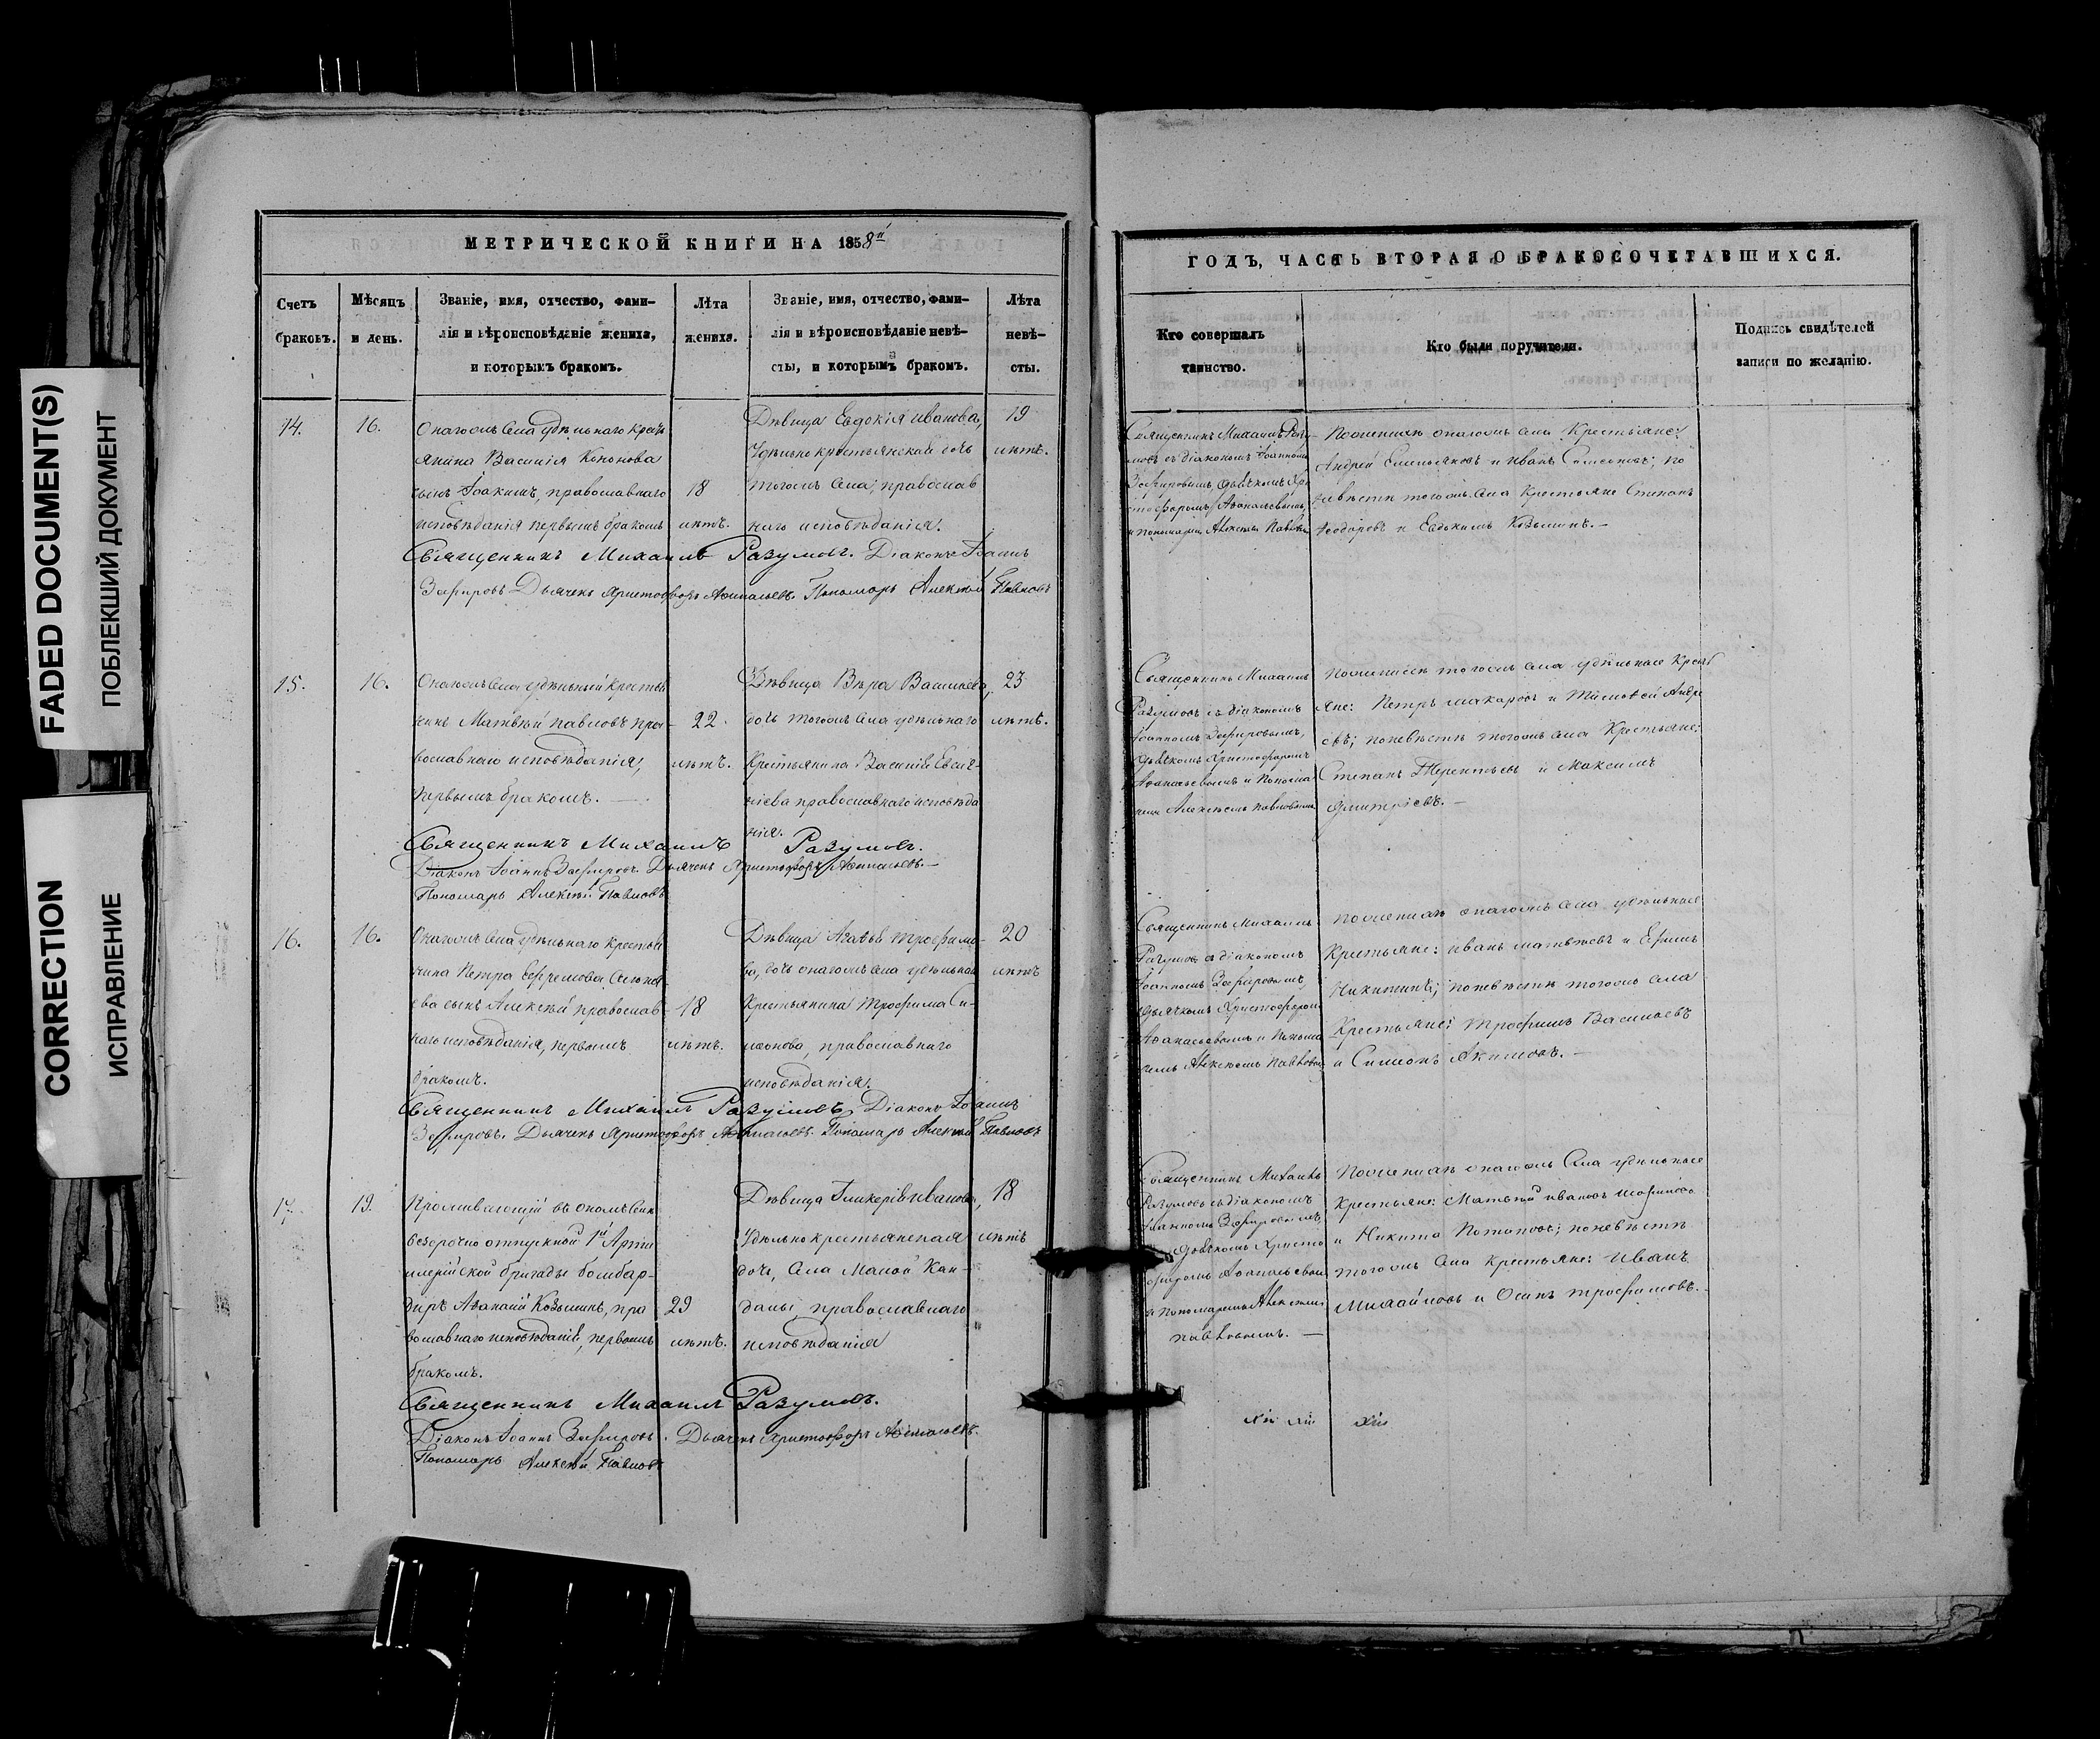 FADED DOCUMENT(S)
ПОБЛЕКШИЙ ДОКУМЕНТ
CORRECTION
ИСПРАВЛЕНИЕ
МЕТРИЧЕСКОЙ КНИГИ НА 1858й
Счетъ браковъ.
Мѣсяцъ и день.
Званіе, имя, отчество, фами-
лія и вѣроисповѣданіе жениха,
и которымъ бракомъ.
Лѣта жениха.
Званіе, имя, отчество, фами-
лія и вѣроисповѣданіе невѣ-
сты, и которымъ бракомъ.
Лѣта невѣ-
сты.
14.
16.
Онагожъ села удѣльнаго кресть
янина Василія Кононова
сынъ Іоакимъ, православнаго
исповѣданія первымъ бракомъ
18
лѣтъ.
Дѣвица Евдокія Иванова,
Удѣльно крестьянская дочь
тогожъ села, православ
наго исповѣданія.
19
лѣтъ.
Священникъ Михаилъ Разумовъ. Діаконъ Іоаннъ
Зефировъ Дьячекъ Христофоръ Афанасьевъ. Пономарь Алексѣй Павловъ
15.
16.
Онагожъ села удѣльный крестья
нинъ Матвѣй Павловъ пра-
вославнаго исповѣданія,
первымъ бракомъ. —
22
лѣтъ.
Дѣвица Вѣра Васильева,
дочь тогожъ села удѣльнаго
Крестьянина Василія
православнаго исповѣда
нія.
23
лѣтъ.
Священникъ Михаилъ Разумовъ.
Діаконъ Іоаннъ Зефировъ. Дьячекъ Христофоръ Афанасьевъ. —
Пономарь Алексѣй Павловъ
16.
16.
Онагожъ села удѣльнаго крестья
нина Петра Ефремова
сынъ Алексѣй православ-
наго исповѣданія, первымъ
бракомъ.
18
лѣтъ.
Дѣвица Агафья Трофимо-
ва, дочь онагожъ села удѣльнаго
Крестьянина Трофима Си-
меонова, православнаго
исповѣданія.
20
лѣтъ
Священникъ Михаилъ Разумовъ, Діаконъ Іоаннъ
Зефировъ. Дьячекъ Христофоръ Афанасьевъ. Пономарь Алексѣй Павловъ
17.
19.
Проживающій въ ономъ селѣ
безсрочно отпускной 1й Арти
лерійской бригады бомбар-
диръ Афанасій Козьминъ, пра
вославнаго исповѣданія, первымъ
бракомъ.
29
лѣтъ.
Дѣвица Гликерія Иванова,
Удѣльно крестьянская
дочь, села Малой Кан-
далы, православнаго
исповѣданія
18
лѣтъ
Священникъ Михаилъ Разумовъ.
Діаконъ Іоаннъ Зефировъ. Дьячекъ Христофоръ Афанасьевъ.
Пономарь Алексѣй Павловъ
ГОДЪ, ЧАСТЬ ВТОРАЯ О БРАКОСОЧЕТАВШИХСЯ.
Кто совершалъ таинство.
Кто были поручители.
Подпись свидѣтелей
записи по желанію.
Священникъ Михаилъ Разу-
мовъ съ діакономъ Іоанномъ
Зефировымъ, дьячкомъ Хри
стофоромъ Афанасьевымъ,
и пономаремъ Алексѣемъ Павловымъ
По женихѣ онагожъ села Крестьяне:
Андрей Емельяновъ и Иванъ Симеоновъ; по
невѣстѣ тогожъ села Крестьяне Степанъ
Ѳеодоровъ и Евдокимъ Козьминъ. —
Священникъ Михаилъ
Разумовъ съ діакономъ
Іоанномъ Зефировымъ,
дьячкомъ Христофоромъ
Афанасьевымъ и Понома
ремъ Алексѣемъ Павловымъ
По женихѣ тогожъ села удѣльные Кресть
яне: Петръ Макаровъ и Тимофей Андре
евъ; по невѣстѣ тогожъ села Крестьяне:
Степанъ Терентьевъ и Максимъ
Дмитріевъ. —
Священникъ Михаилъ
Разумовъ съ діакономъ
Іоанномъ Зефировымъ,
дьячкомъ Христофоромъ
Афанасьевымъ и Понома
ремъ Алексѣемъ Павловымъ
По женихѣ онагожъ села удѣльные
Крестьяне: Иванъ Матвѣевъ и Ефимъ
Никитинъ; по невѣстѣ тогожъ села
Крестьяне: Трофимъ Васильевъ
и Симеонъ Акимовъ. —
Священникъ Михаилъ
Разумовъ съ діакономъ
Іоанномъ Зефировымъ,
дьячкомъ Христо
форомъ Афанасьевымъ
и пономаремъ Алексѣемъ
Павловымъ. —
По женихѣ онагожъ села удѣльные
Крестьяне: Матвѣй Ивановъ
и Никита Потаповъ; по невѣстѣ
тогожъ села крестьяне: Иванъ
Михайловъ и Осипъ Трофимовъ.